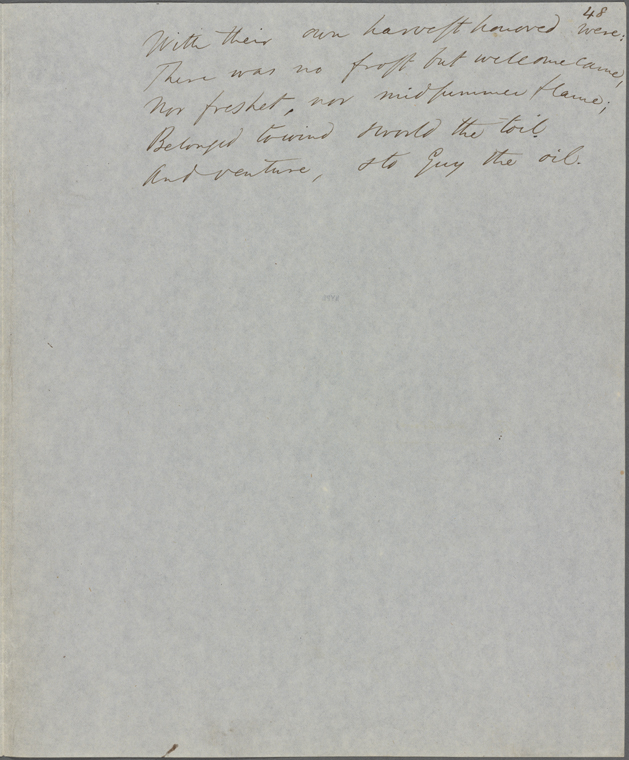 48
With their own harvest honored were:
There was no frost but welcome came,
Nor freshet, nor midsummer flame;
Belonged to wind & world the toil
And venture, & to Guy the oil.